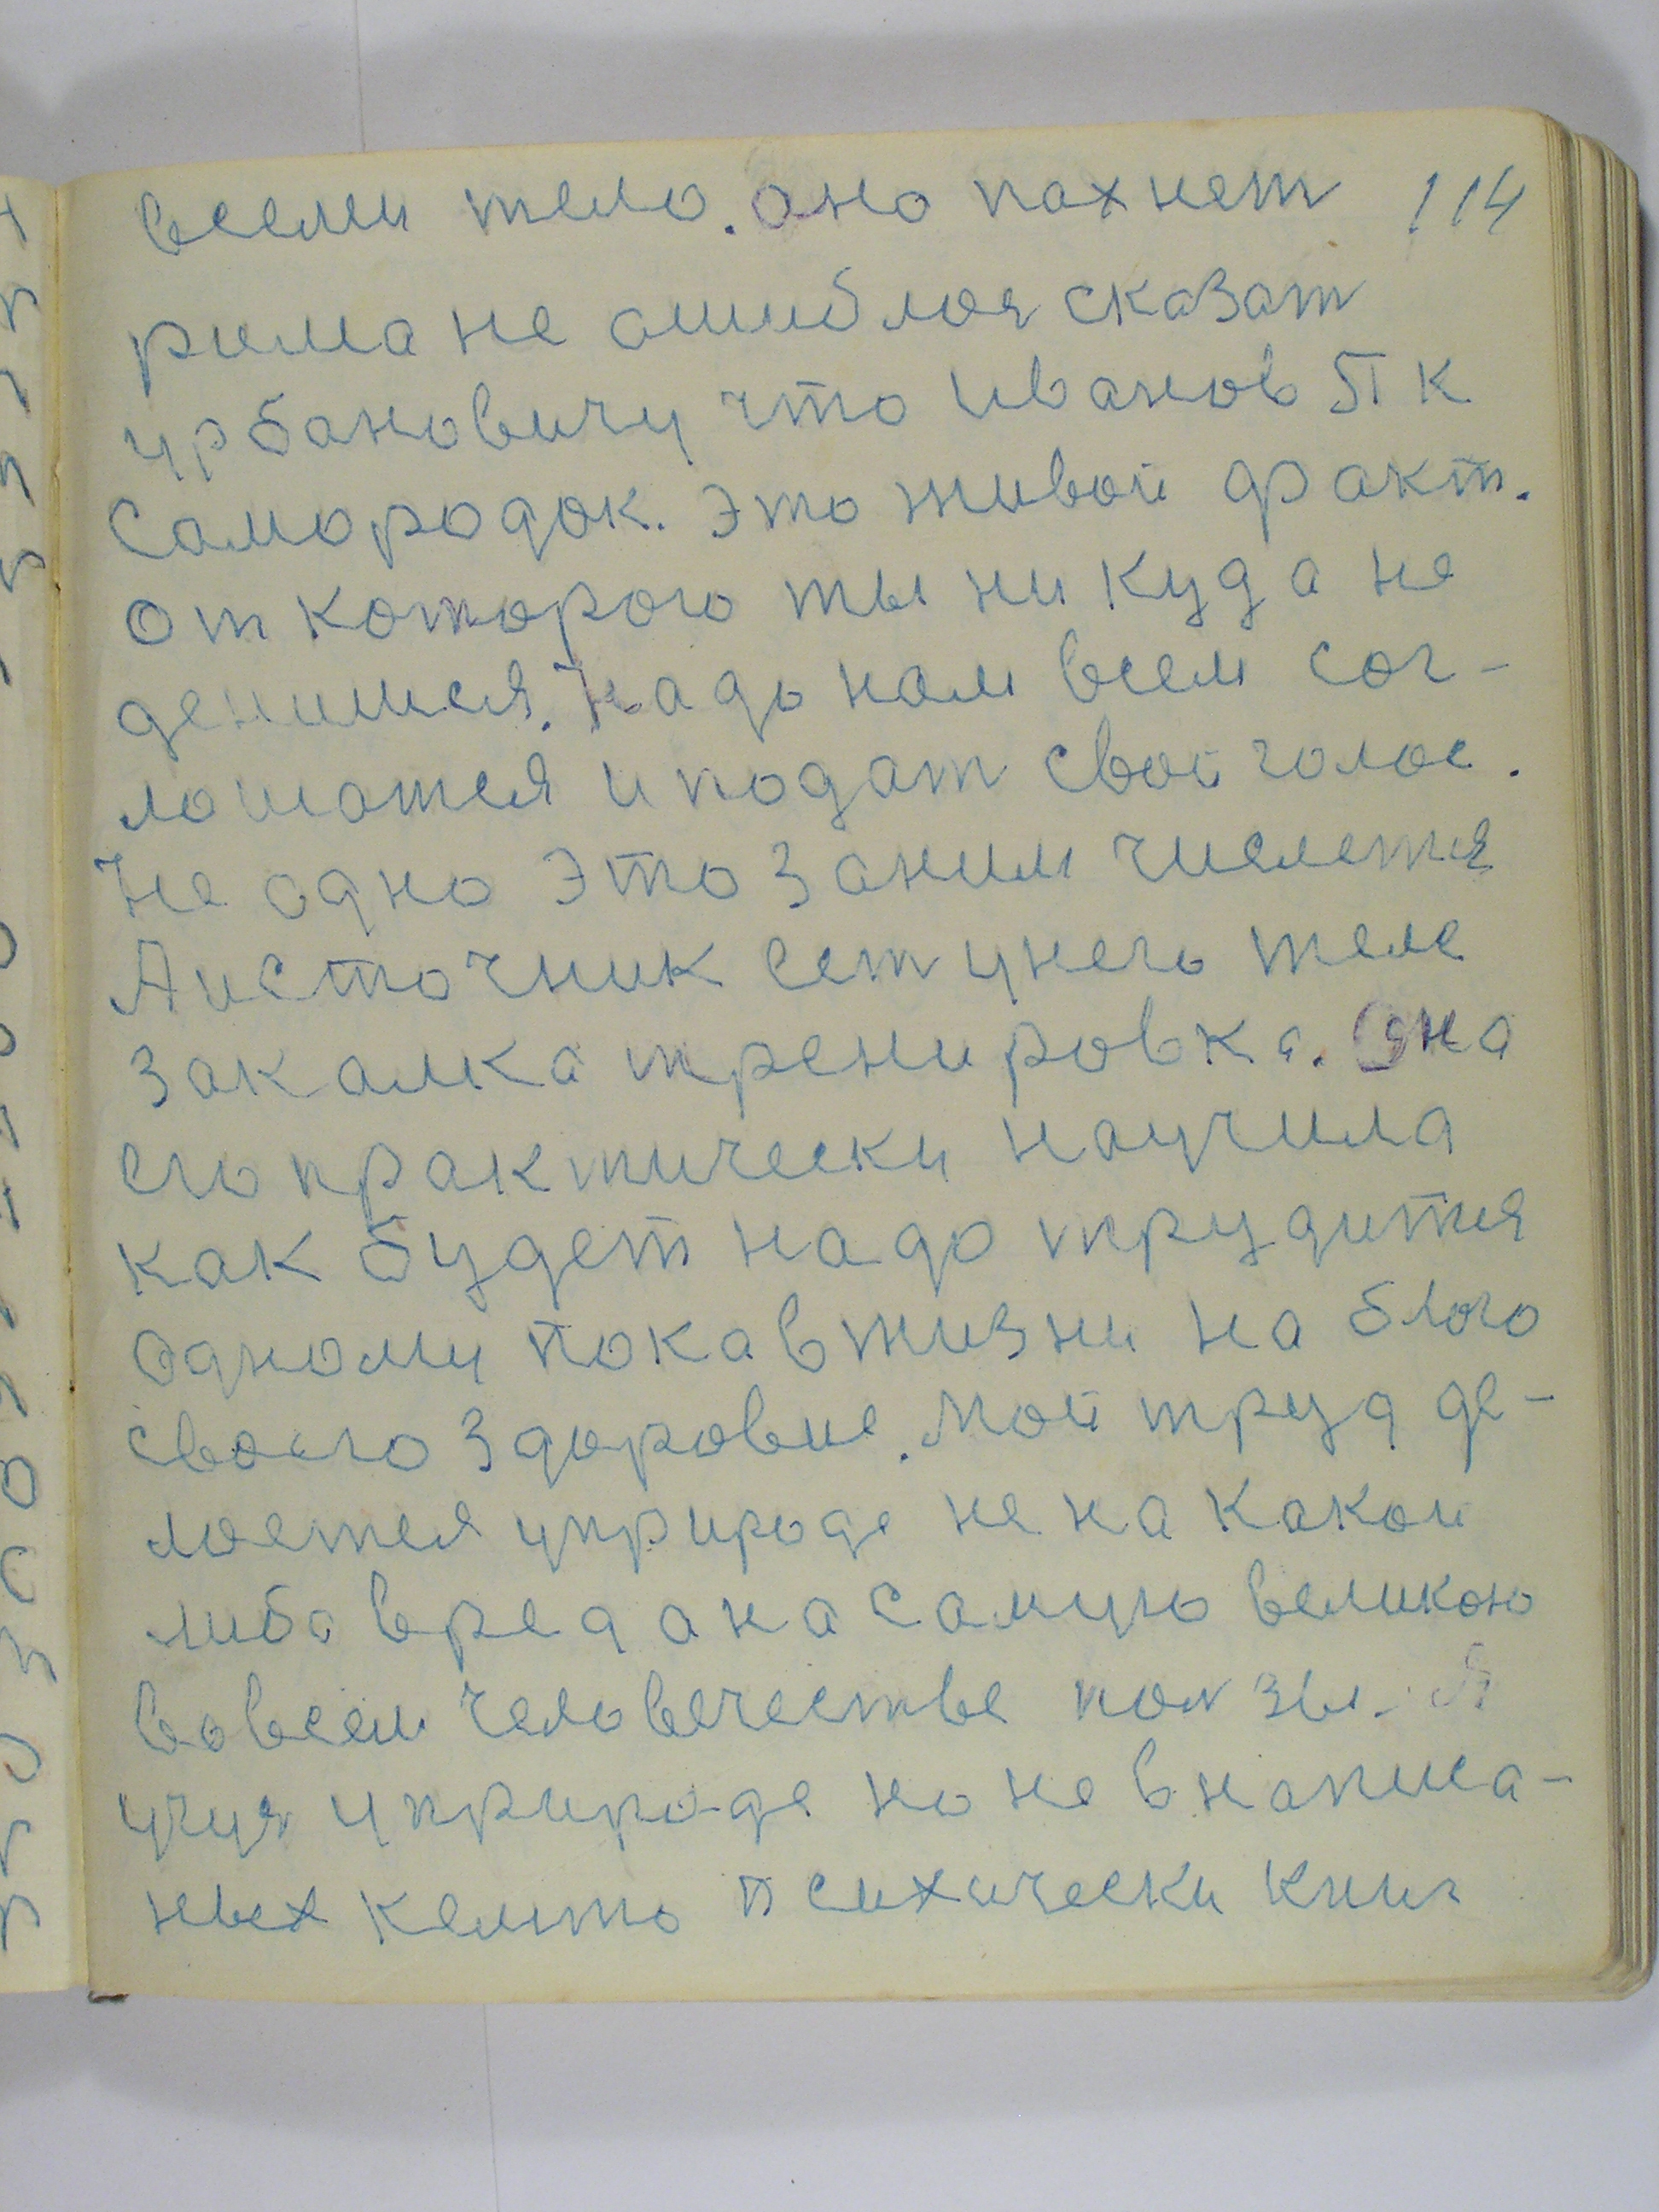 всеми тело. оно пахнет 114
рима не ошиблоя сказат
урбановичу что Иванов ПК
Самородок. Это живой факт.
от которого ты ни куда не
денишся. Надо нам всем сог-
лошатся и подат свой голос.
Не одно это заним числется
А источник ест унего теле
закалка тренировка. Она
его практически научила
как будет надо трудится
одному пока в жизни на благо
своего здоровие. Мой труд де-
лоется уприроде не на какои
либо вред а на самую великою
вовсем человечестве ползы. Я
учуя уприроде но не внаписа-
ных кемто психически книг